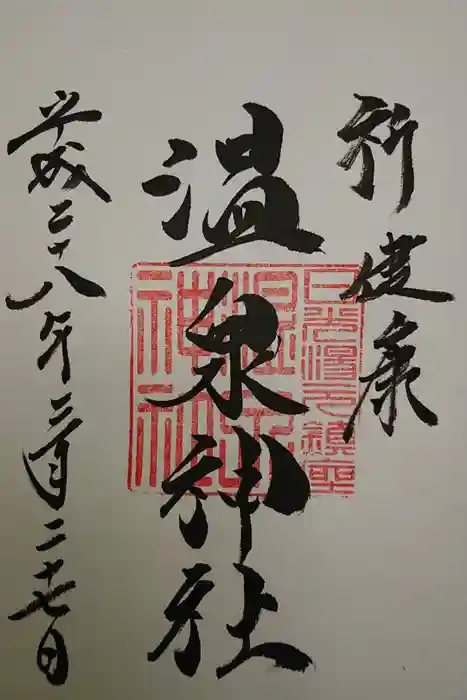 祈健康
温泉神社
平成二十八年三月二十七日
日光湯元鎮座
温泉神社